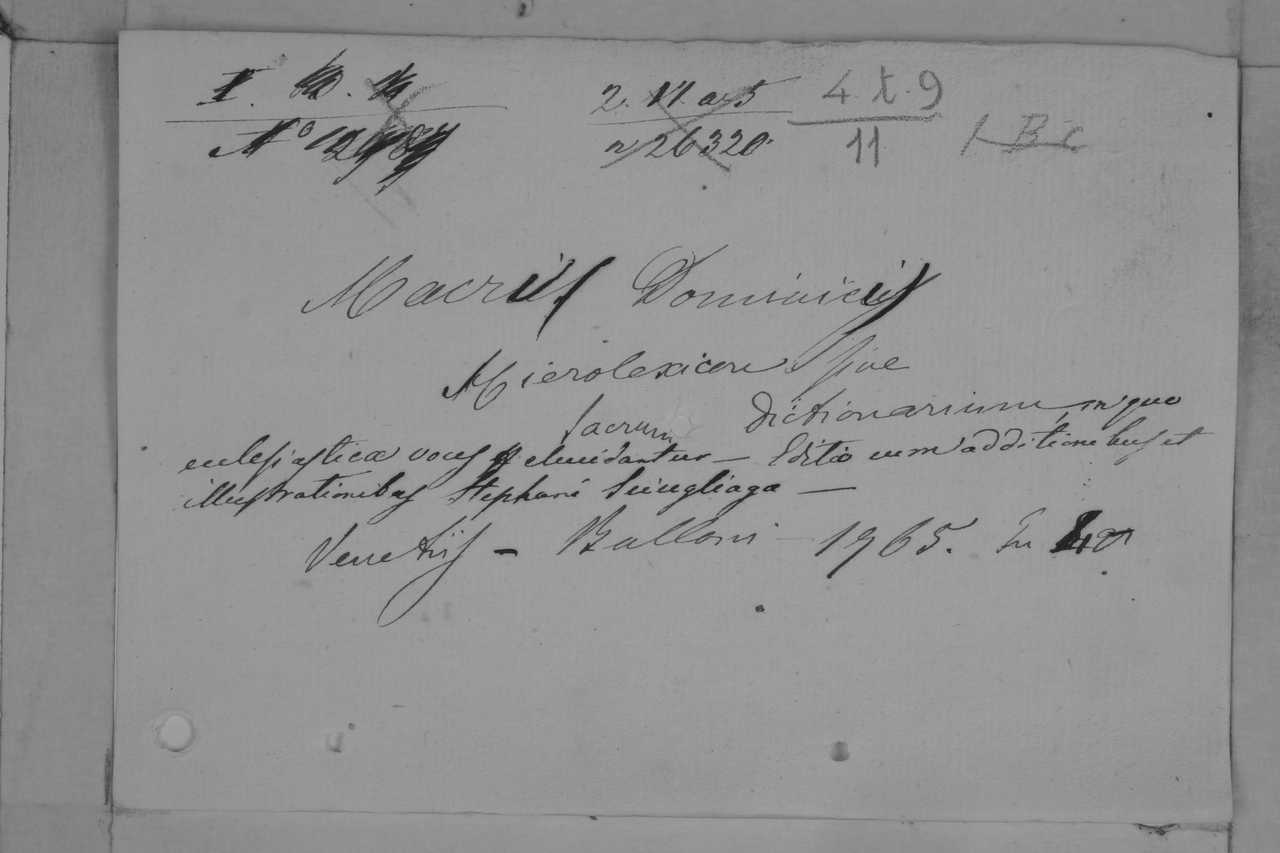 2. VI. a. 5 4. t. 9
n 26320. 11
Macrus Dominicus
Hierolexicon sive
sacrum Dictionarium in quo
eclesiasticæ voces elucidantur — Editio cum additionibus et
illustrationibus Stephani Sciugliaga —
Venetiis — Balloni — 1765. In 4o